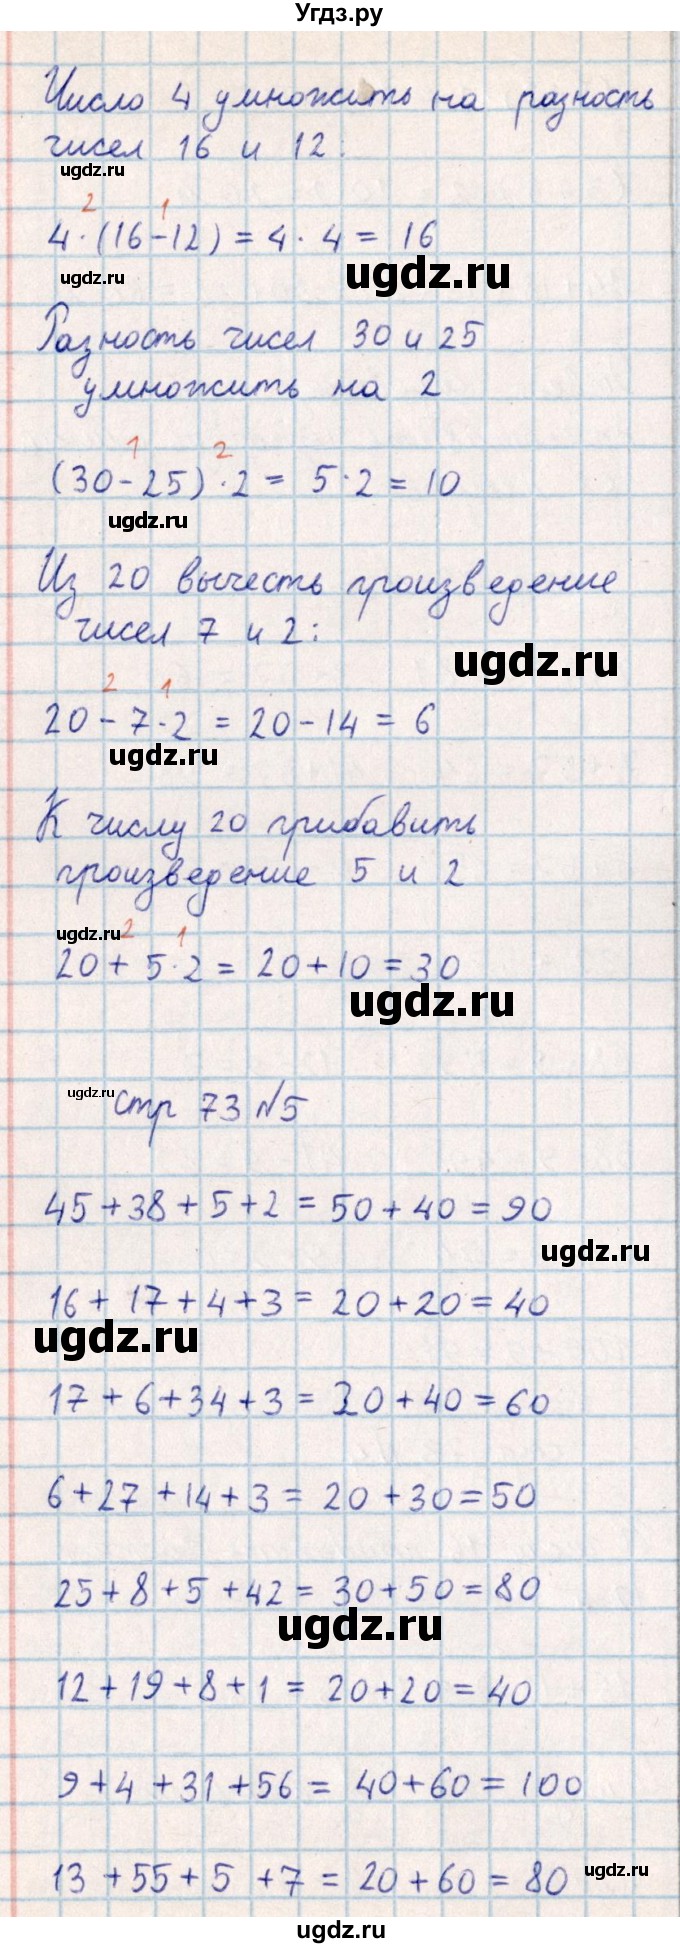 Угдз.ру
Число 4 умножить на разность
чисел 16 и 12:
ugdz.ru
2 1
4·(16-12) = 4·4 = 16
ugdz.ru
ugdz.ru
Разность чисел 30 и 25
умножить на 2
1 2
(30-25)·2 = 5·2 = 10
ugdz.ru
Из 20 вычесть произведение
чисел 7 и 2:
ugdz.ru
2 1
20-7·2 = 20-14 = 6
ugdz.ru
К числу 20 прибавить
произведение 5 и 2
ugdz.ru
2 1
20+5·2 = 20+10 = 30
ugdz.ru
ugdz.ru
стр 73 №5
45+38+5+2 = 50+40 = 90
ugdz.ru
16+17+4+3 = 20+20 = 40
ugdz.ru
17+6+34+3 = 20+40 = 60
6+27+14+3 = 20+30 = 50
25+8+5+42 = 30+50 = 80
ugdz.ru
12+19+8+1 = 20+20 = 40
9+4+31+56 = 40+60 = 100
13+55+5+7 = 20+60 = 80
ugdz.ru
ugdz.ru